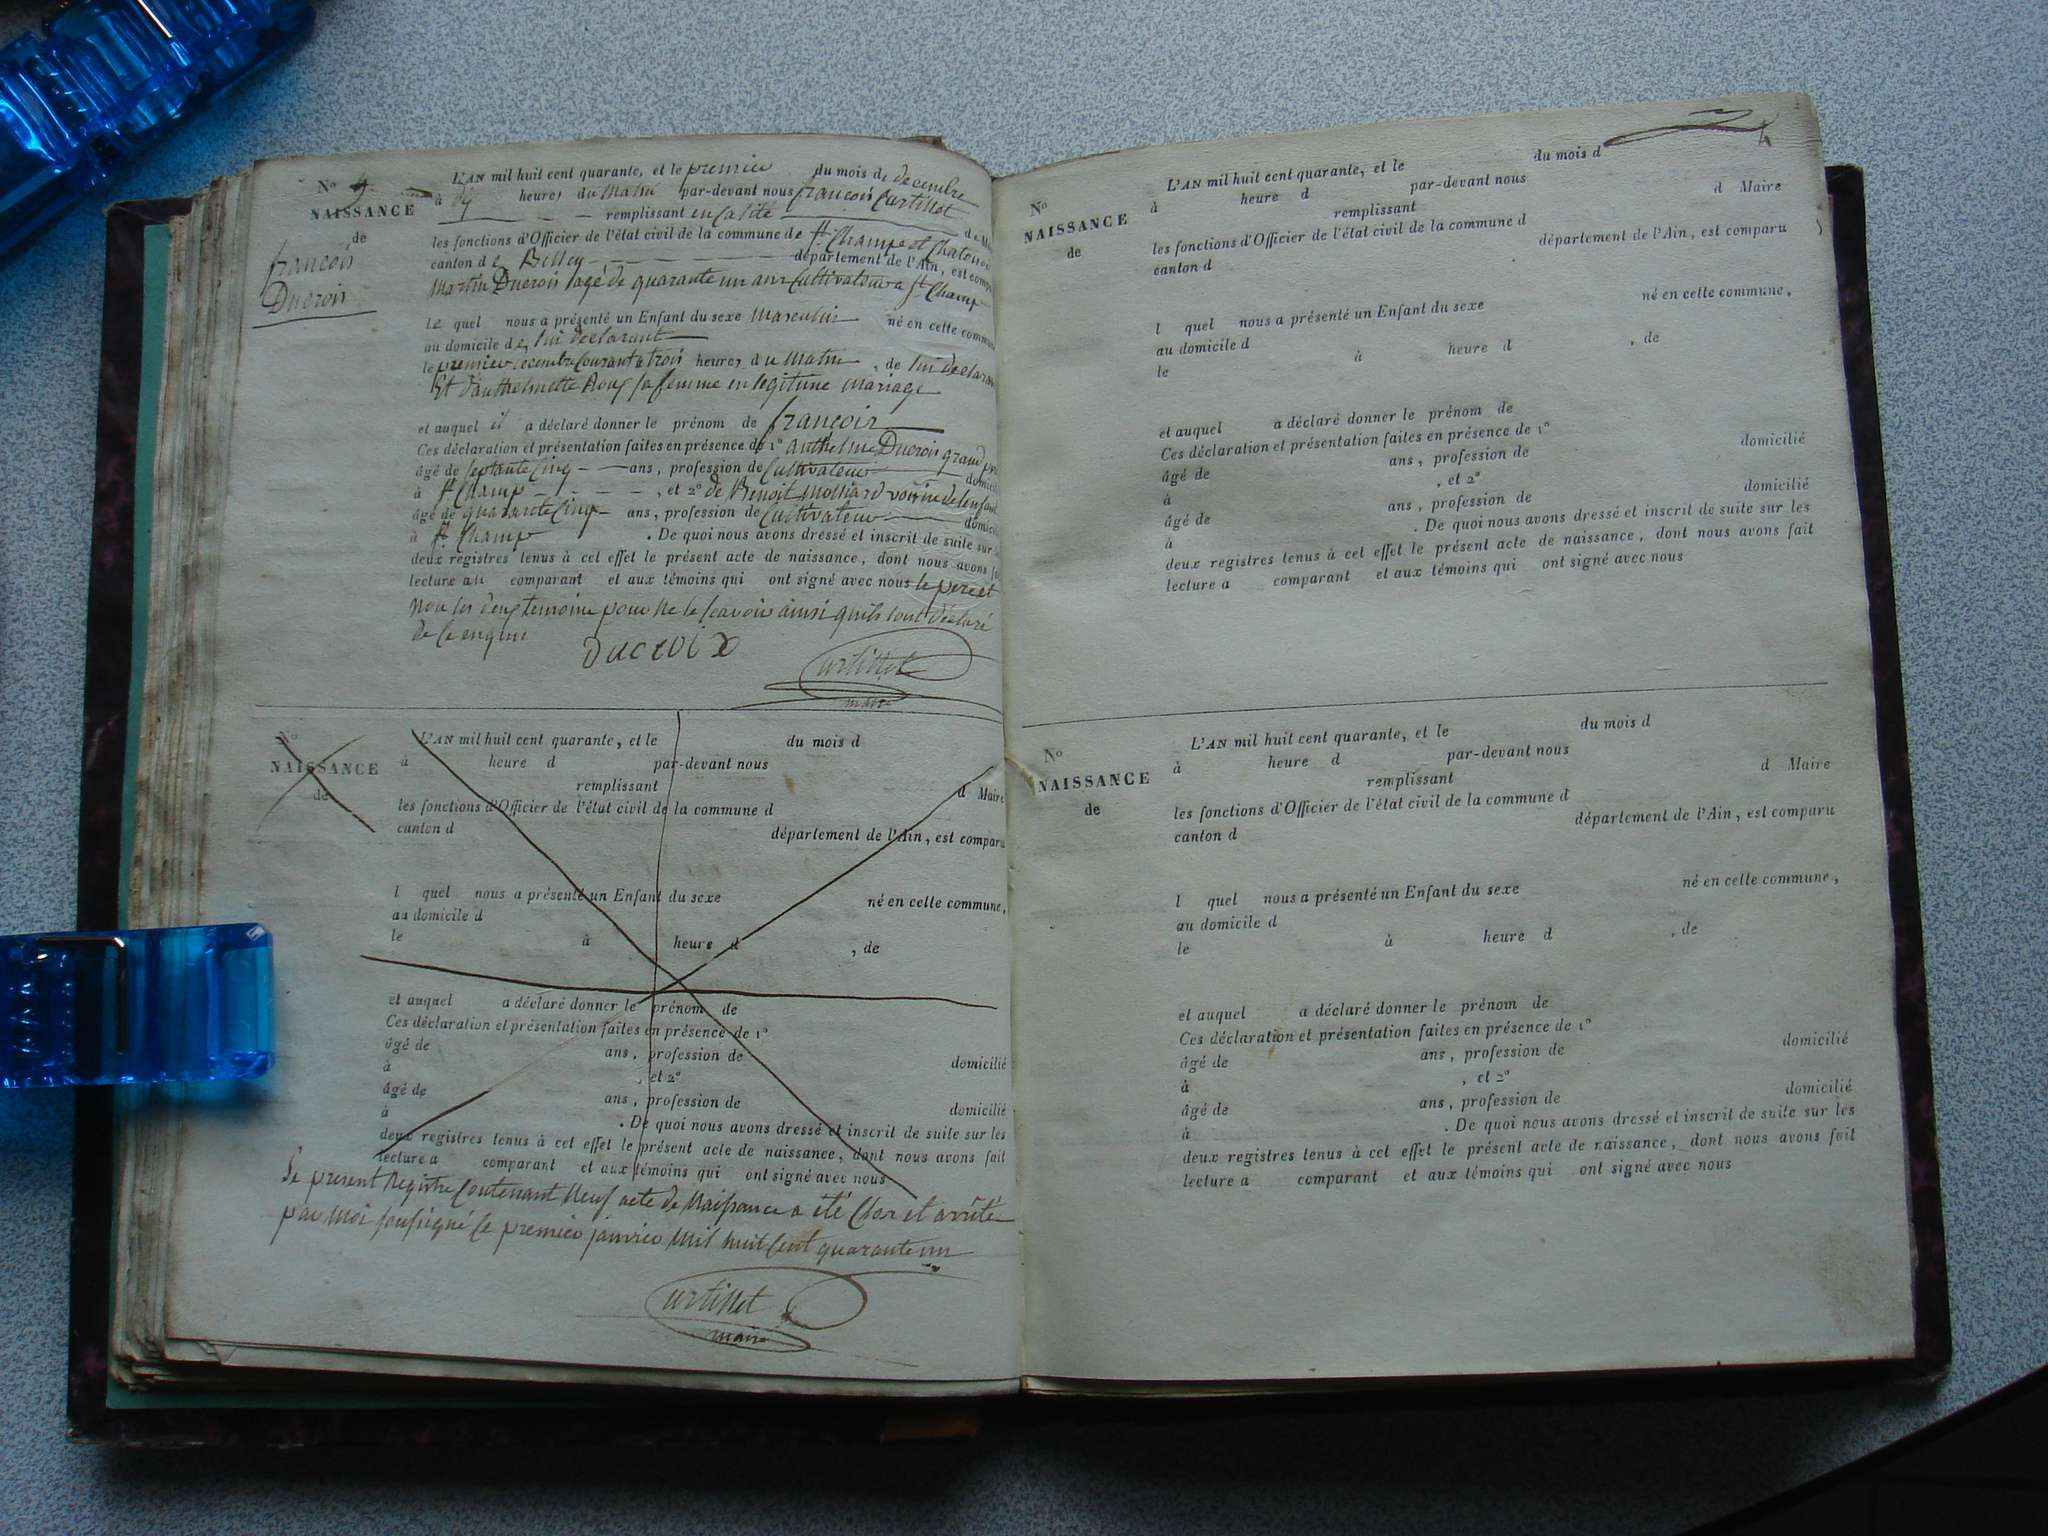 N° 9.
NAISSANCE
de
françois
Ducroix
L'AN mil huit cent quarante, et le premier du mois de decembre
à dix heures du Matin par-devant nous françois Curtillet
remplissant en calité de M
les fonctions d'Officier de l'état civil de la commune de St. Champ et Chatonod
canton de Belley département de l'Ain, est compa
Martin Ducroix agé de quarante un ans Cultivateur a St. Champ
le quel nous a présenté un Enfant du sexe Masculin né en cette commune
au domicile de lui declarant
le premier decembre Courant à trois heures du Matin, de lui declarant
Et d'anthelmette Roux sa femme en legitime mariage
et auquel il a déclaré donner le prénom de françois
Ces déclaration et présentation faites en présence de 1° anthelme Ducroix grand pere
âgé de septante Cinq ans, profession de Cultivateur domicilié
à St. Champ, et 2° de Benoit Molliard voisin de l'enfant
âgé de quarante Cinq ans, profession de Cultivateur domicilié
à St. Champ. De quoi nous avons dressé et inscrit de suite sur les
deux registres tenus à cet effet le présent acte de naissance, dont nous avons fait
lecture au comparant et aux témoins qui ont signé avec nous le pere et
non les deux temoins pour ne le scavoir ainsi quils lont déclaré
de ce enquis
Ducroix
Curtillet
maire
N°
NAISSANCE
de
L'AN mil huit cent quarante, et le du mois d
à heure d par-devant nous
remplissant d Maire
les fonctions d'Officier de l'état civil de la commune d
canton d département de l'Ain, est comparu
l quel nous a présenté un Enfant du sexe né en cette commune,
au domicile d
le à heure d , de
et auquel a déclaré donner le prénom de
Ces déclaration et présentation faites en présence de 1°
âgé de ans, profession de domicilié
à , et 2°
âgé de ans, profession de domicilié
à . De quoi nous avons dressé et inscrit de suite sur les
deux registres tenus à cet effet le présent acte de naissance, dont nous avons fait
lecture a comparant et aux témoins qui ont signé avec nous
Le present Registre Contenant Neuf acte de Naissance a été Clos et arrêté
par Moi soussigné le premier janvier Mil huit Cent quarante un
Curtillet
maire
N°
NAISSANCE
de
L'AN mil huit cent quarante, et le du mois d
à heure d par-devant nous
remplissant d Maire
les fonctions d'Officier de l'état civil de la commune d
canton d département de l'Ain, est comparu
l quel nous a présenté un Enfant du sexe né en cette commune,
au domicile d
le à heure d , de
et auquel a déclaré donner le prénom de
Ces déclaration et présentation faites en présence de 1°
âgé de ans, profession de domicilié
à , et 2°
âgé de ans, profession de domicilié
à . De quoi nous avons dressé et inscrit de suite sur les
deux registres tenus à cet effet le présent acte de naissance, dont nous avons fait
lecture a comparant et aux témoins qui ont signé avec nous
N°
NAISSANCE
de
L'AN mil huit cent quarante, et le du mois d
à heure d par-devant nous
remplissant d Maire
les fonctions d'Officier de l'état civil de la commune d
canton d département de l'Ain, est comparu
l quel nous a présenté un Enfant du sexe né en cette commune,
au domicile d
le à heure d , de
et auquel a déclaré donner le prénom de
Ces déclaration et présentation faites en présence de 1°
âgé de ans, profession de domicilié
à , et 2°
âgé de ans, profession de domicilié
à . De quoi nous avons dressé et inscrit de suite sur les
deux registres tenus à cet effet le présent acte de naissance, dont nous avons fait
lecture a comparant et aux témoins qui ont signé avec nous